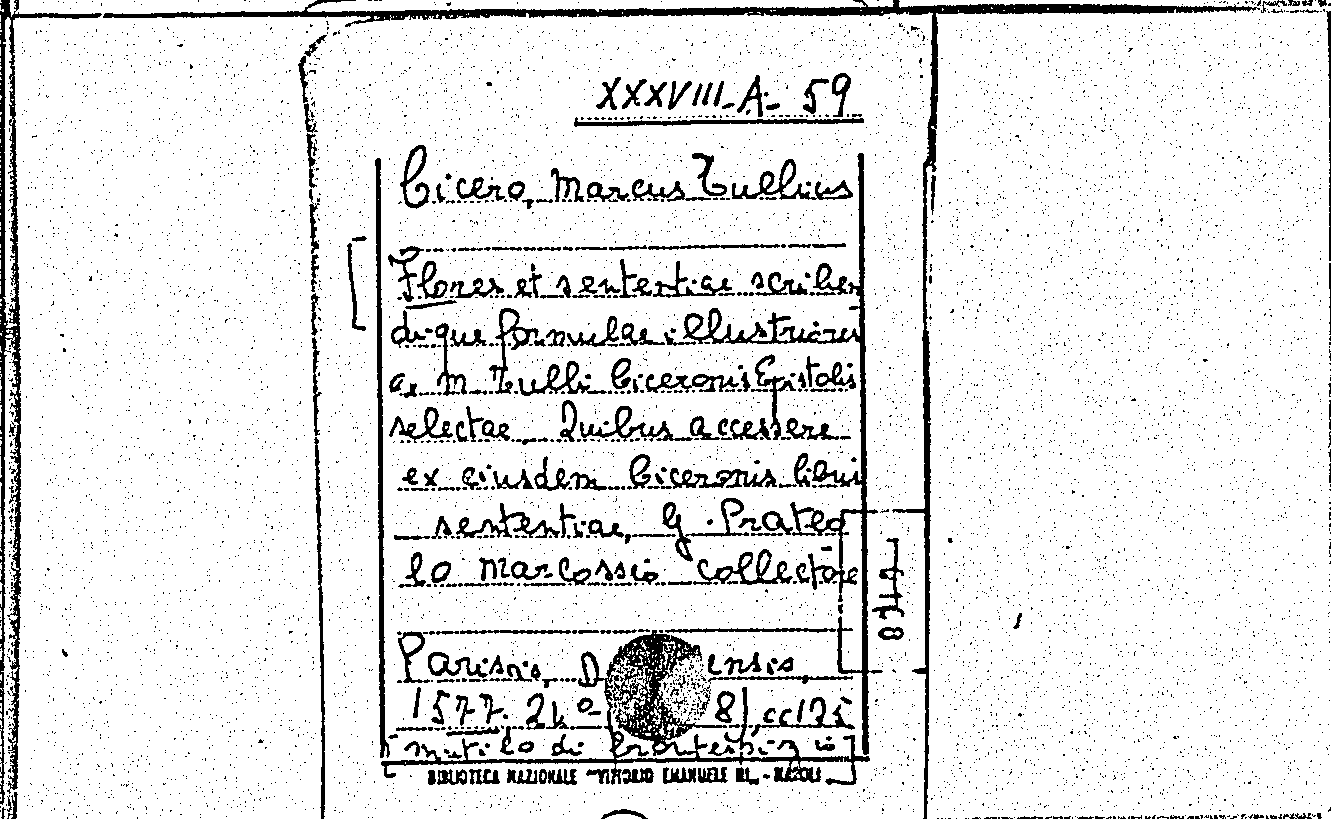 XXXVIII-A-59
Cicero, Marcus Tullius
[Flores et sententiae scriben
dique formulae illustriores
a, M. Tulli Ciceronis Epistolis
selectae. Quibus accessere
ex eiusdem Ciceronis libris
sententiae, G. Prateo
lo Marcossio collectae
Parisiis, D ensis,
1577. 24° 8), cc 125
[mutilo di frontespizio]
BIBLIOTECA NAZIONALE "VITTORIO EMANUELE III" - NAPOLI